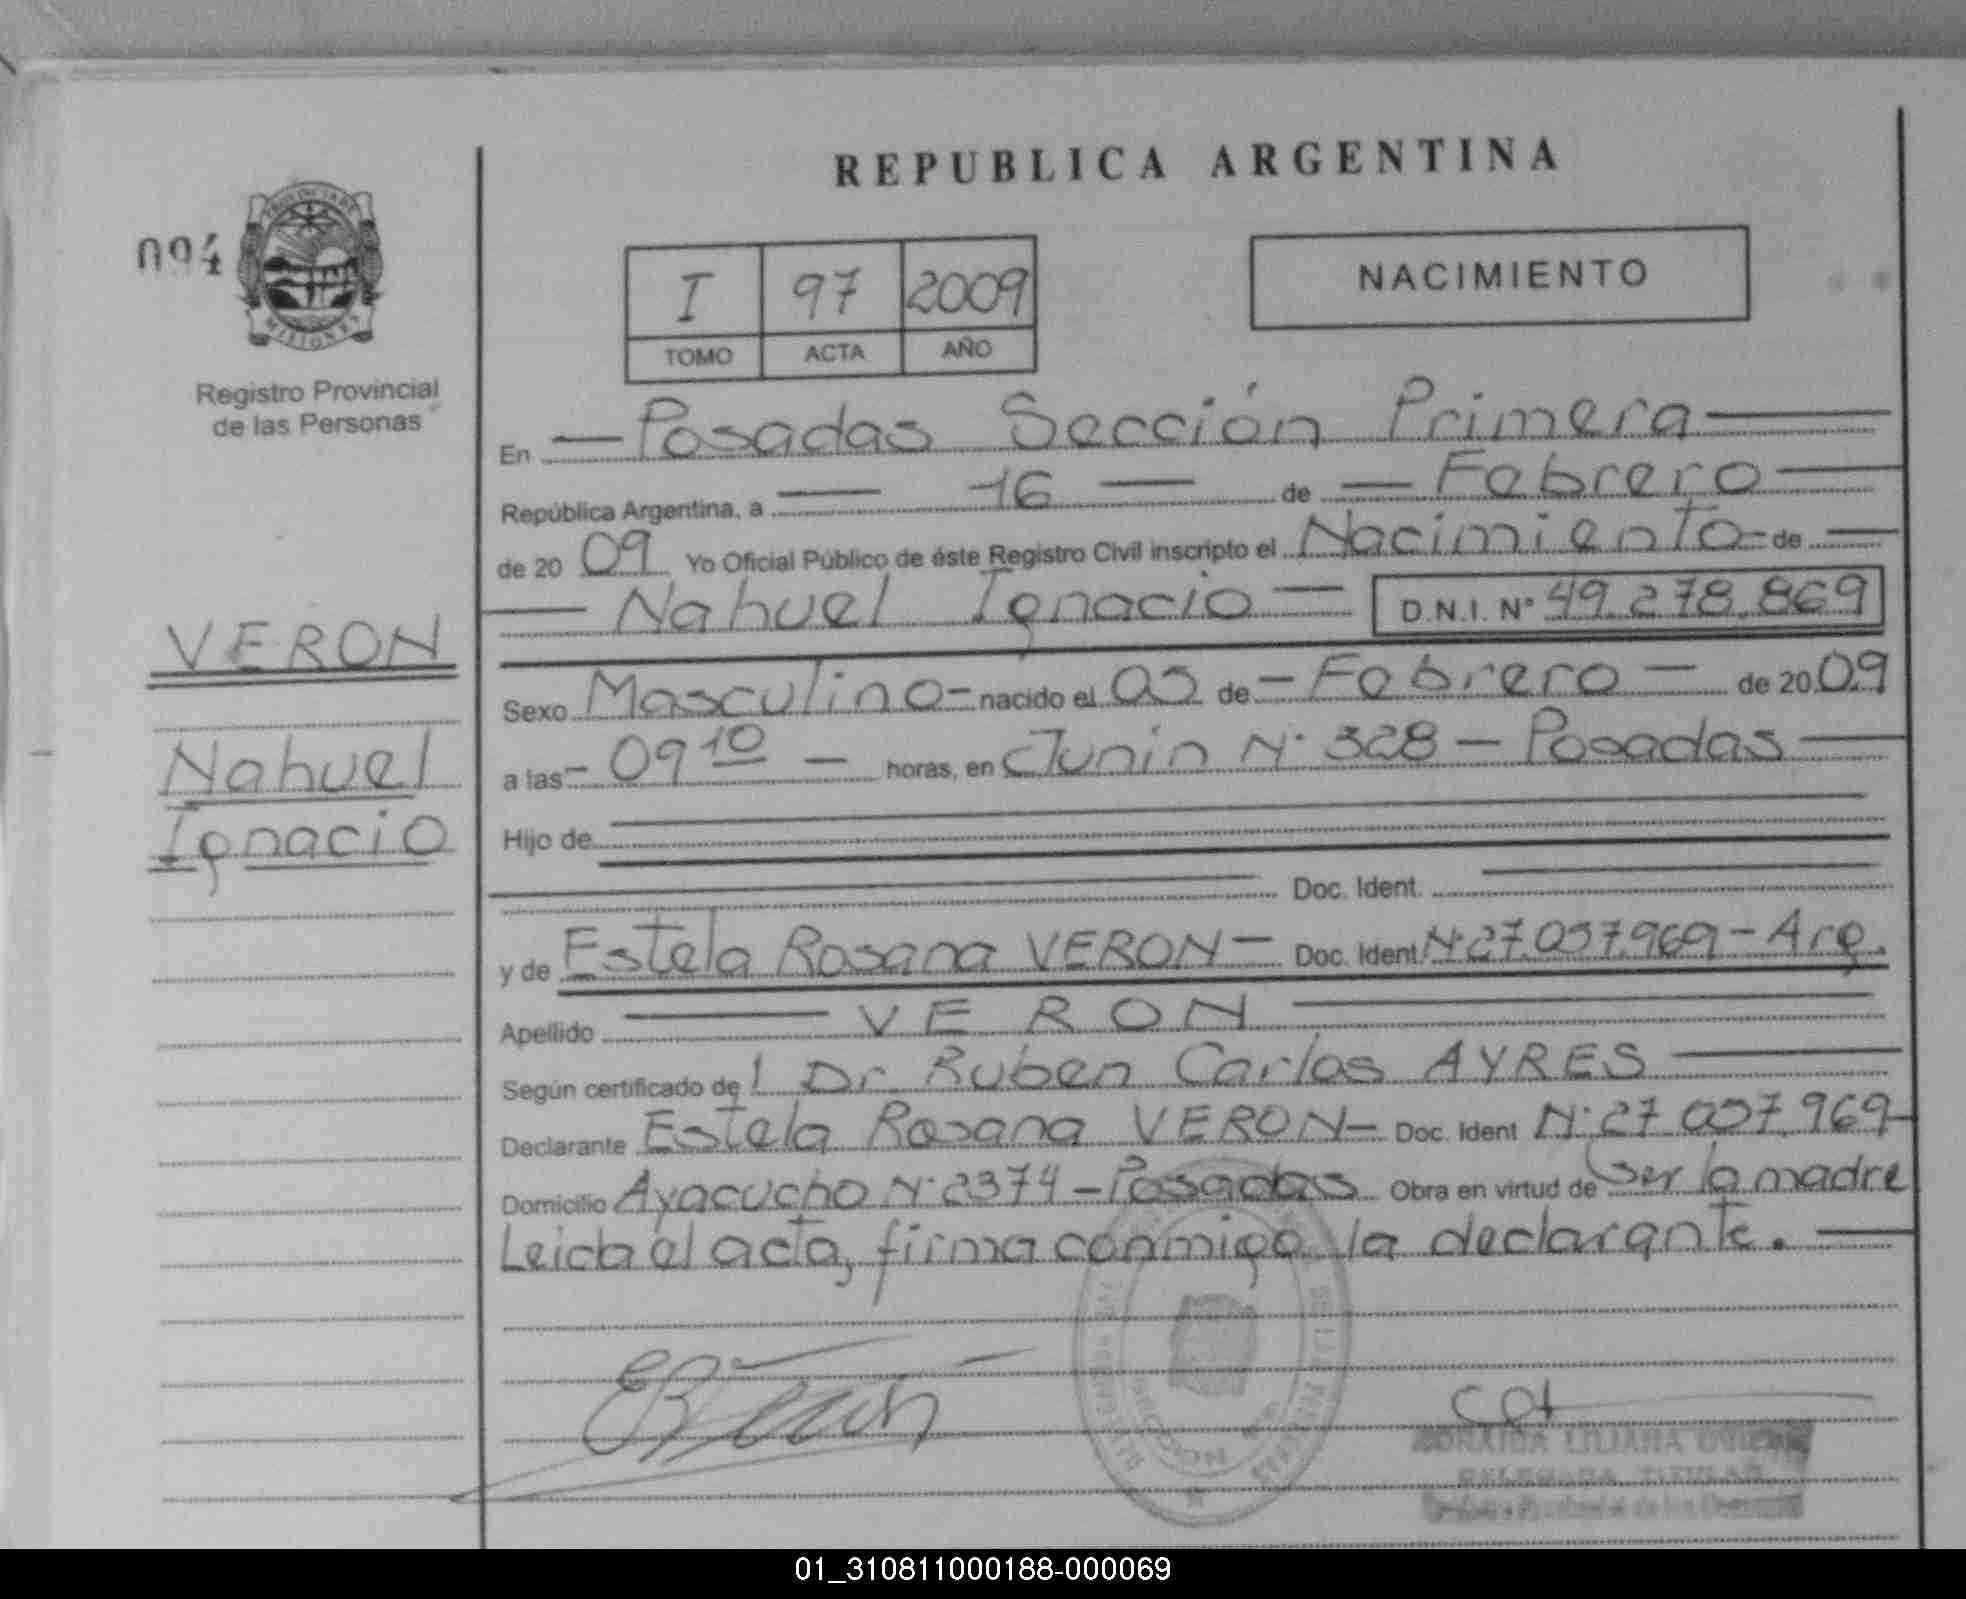 REPUBLICA ARGENTINA
094
PROVINCIA DE
MISIONES
Registro Provincial
de las Personas
I 97 2009
TOMO ACTA AÑO
NACIMIENTO
En — Posadas Sección Primera —
República Argentina, a — 16 — de — Febrero —
de 20 09 Yo Oficial Público de éste Registro Civil inscripto el Nacimiento - de —
— Nahuel Ignacio — D.N.I. Nº 49.278.869
VERON
Nahuel
Ignacio
Sexo Masculino - nacido el 03 de - Febrero — de 20 09
a las - 09 10 — horas, en Junin Nº 328 — Posadas —
Hijo de
Doc. Ident.
y de Estela Rosana VERON — Doc. Ident Nº 27.037.969 - Arg.
Apellido — VERON —
Según certificado de l Dr. Ruben Carlos AYRES —
Declarante Estela Rosana VERON — Doc. Ident Nº 27.037.969 -
Domicilio Ayacucho Nº 2374 - Posadas Obra en virtud de Ser la madre
Leida el acta, firma conmigo la declarante. —
DELEGADA TITULAR
01_310811000188-000069